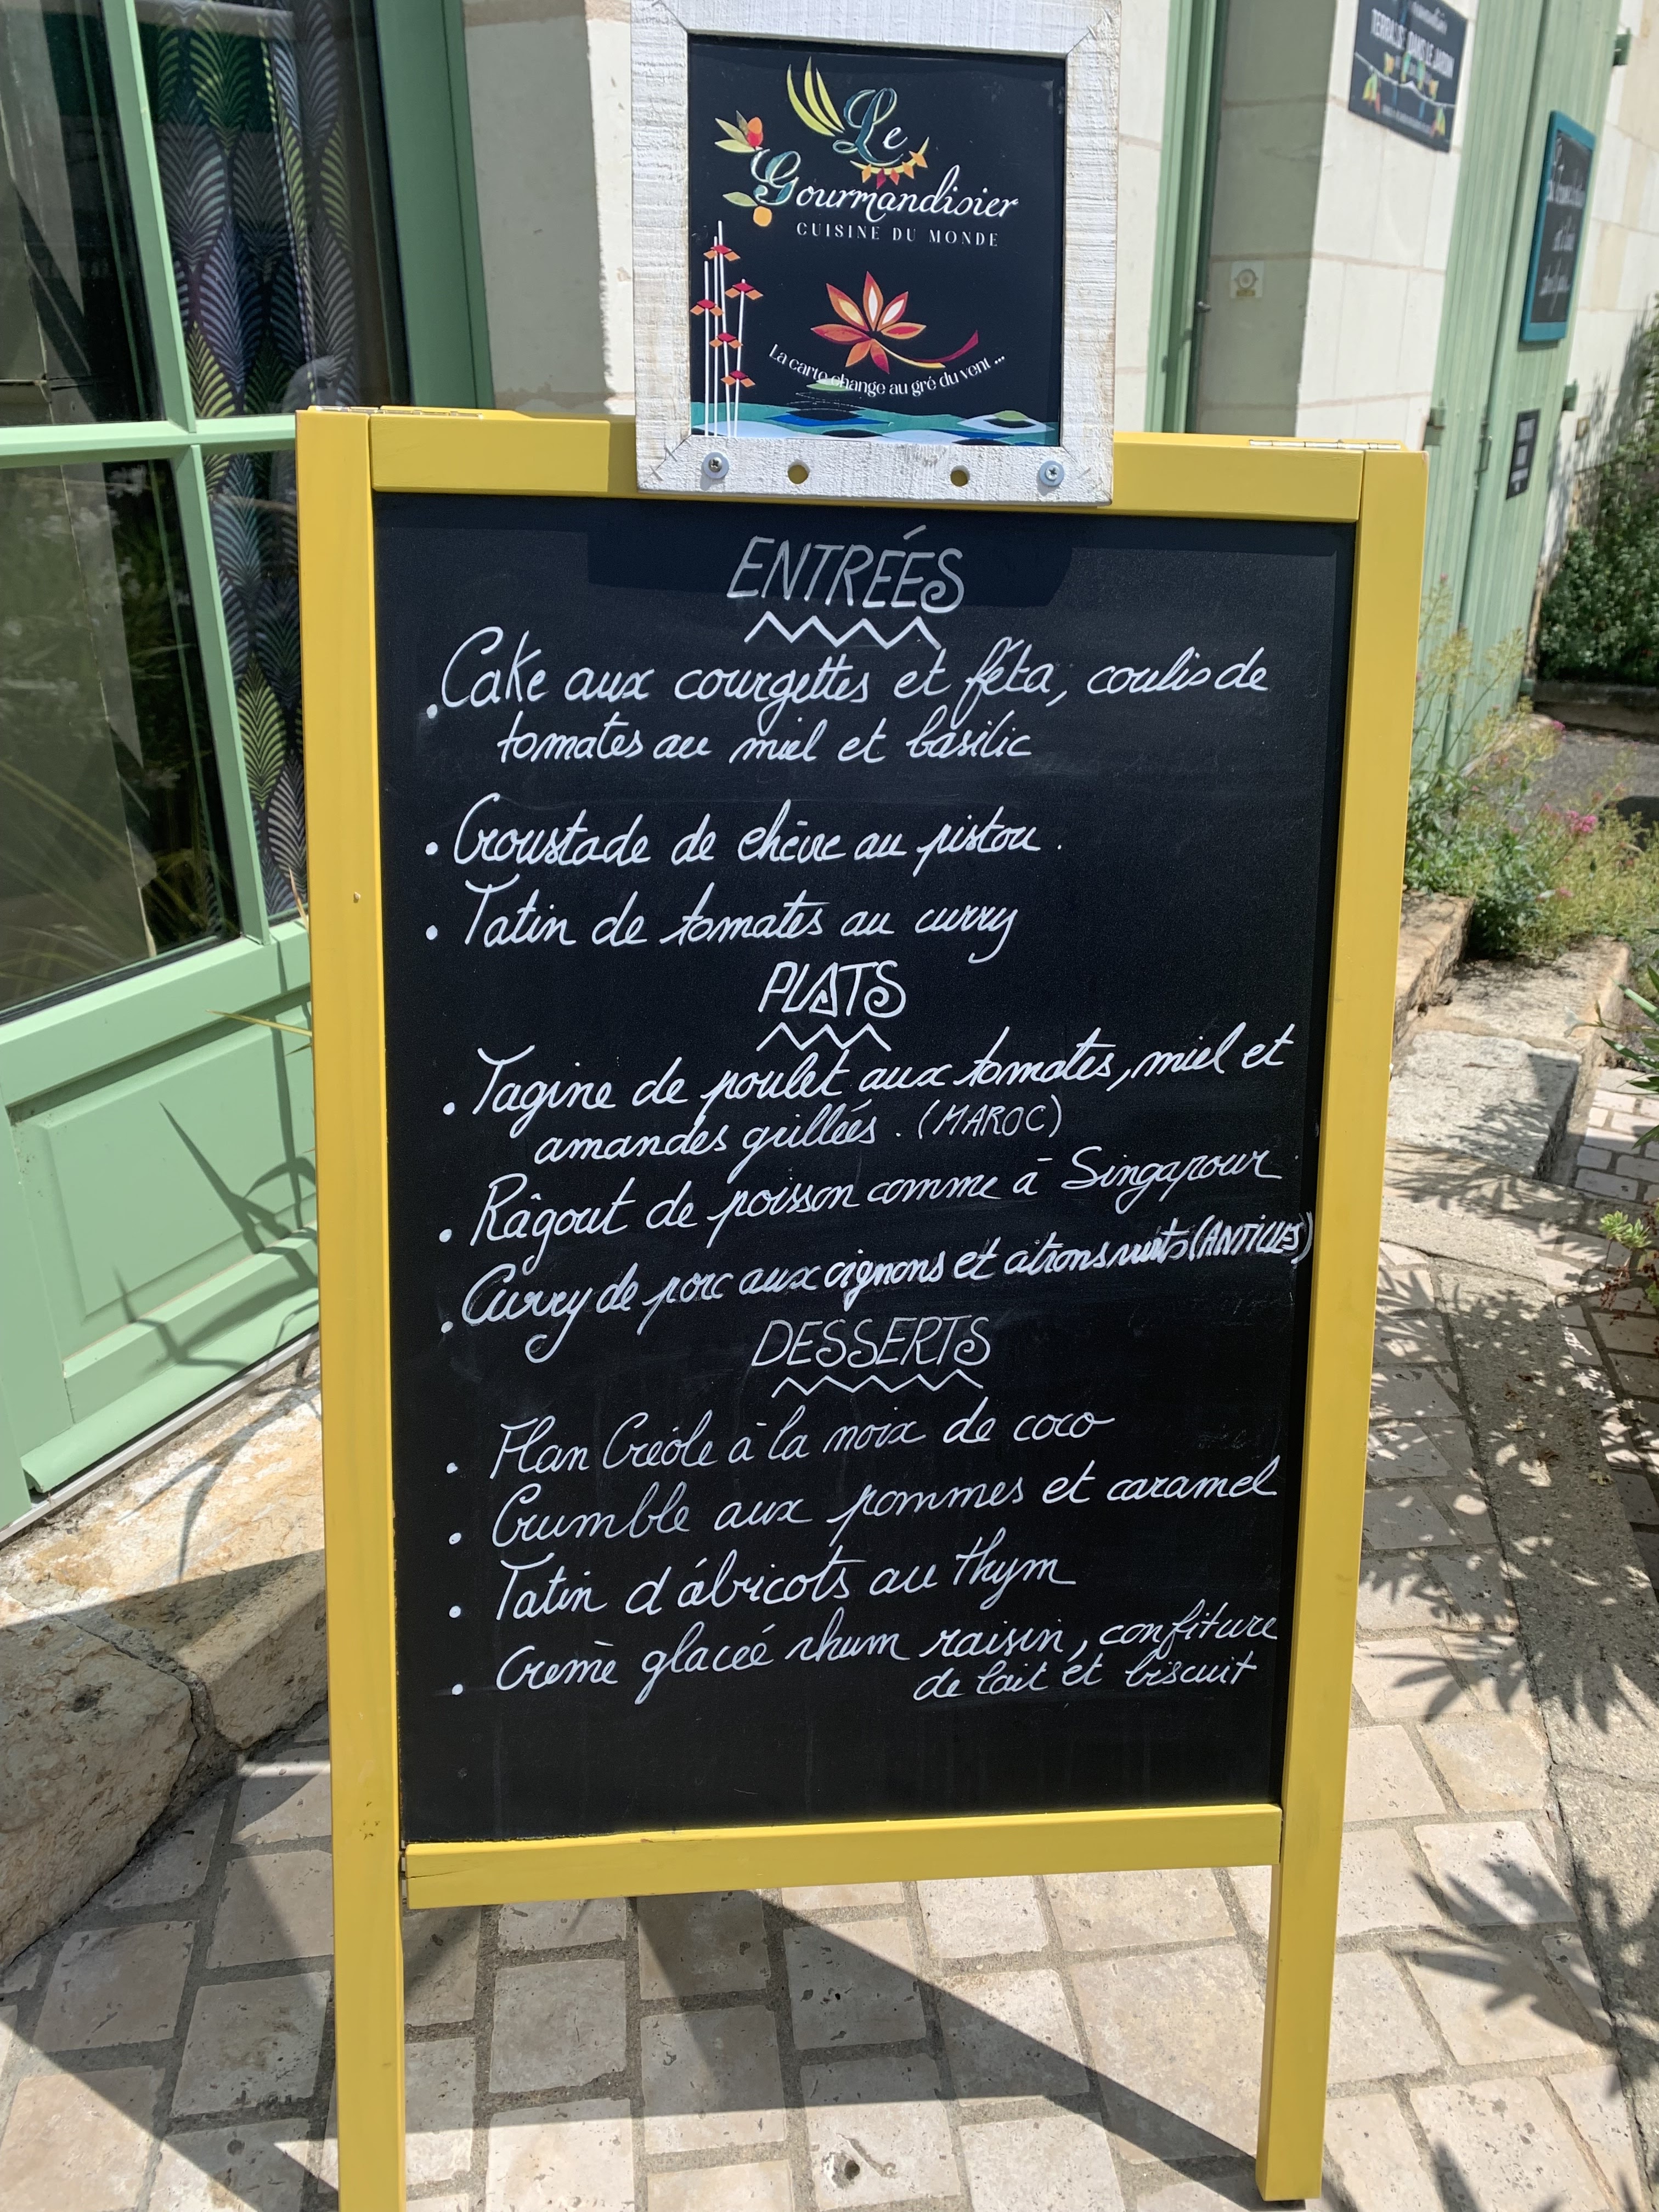 Le
Gourmandisier
CUISINE DU MONDE
La carte change au gré du vent ...
TERRASSE DANS LE JARDIN
ENTRÉES
. Cake aux courgettes et féta, coulis de
tomates au miel et basilic
• Croustade de chèvre au pistou .
• Tatin de tomates au curry
PLATS
. Tagine de poulet aux tomates, miel et
amandes grillées . (MAROC)
. Râgout de poisson comme à Singapour
. Curry de porc aux oignons et citrons verts (ANTILLES)
DESSERTS
. Flan Créole à la noix de coco
. Crumble aux pommes et caramel
. Tatin d'abricots au thym
. Crème glacée rhum raisin, confiture
de lait et biscuit